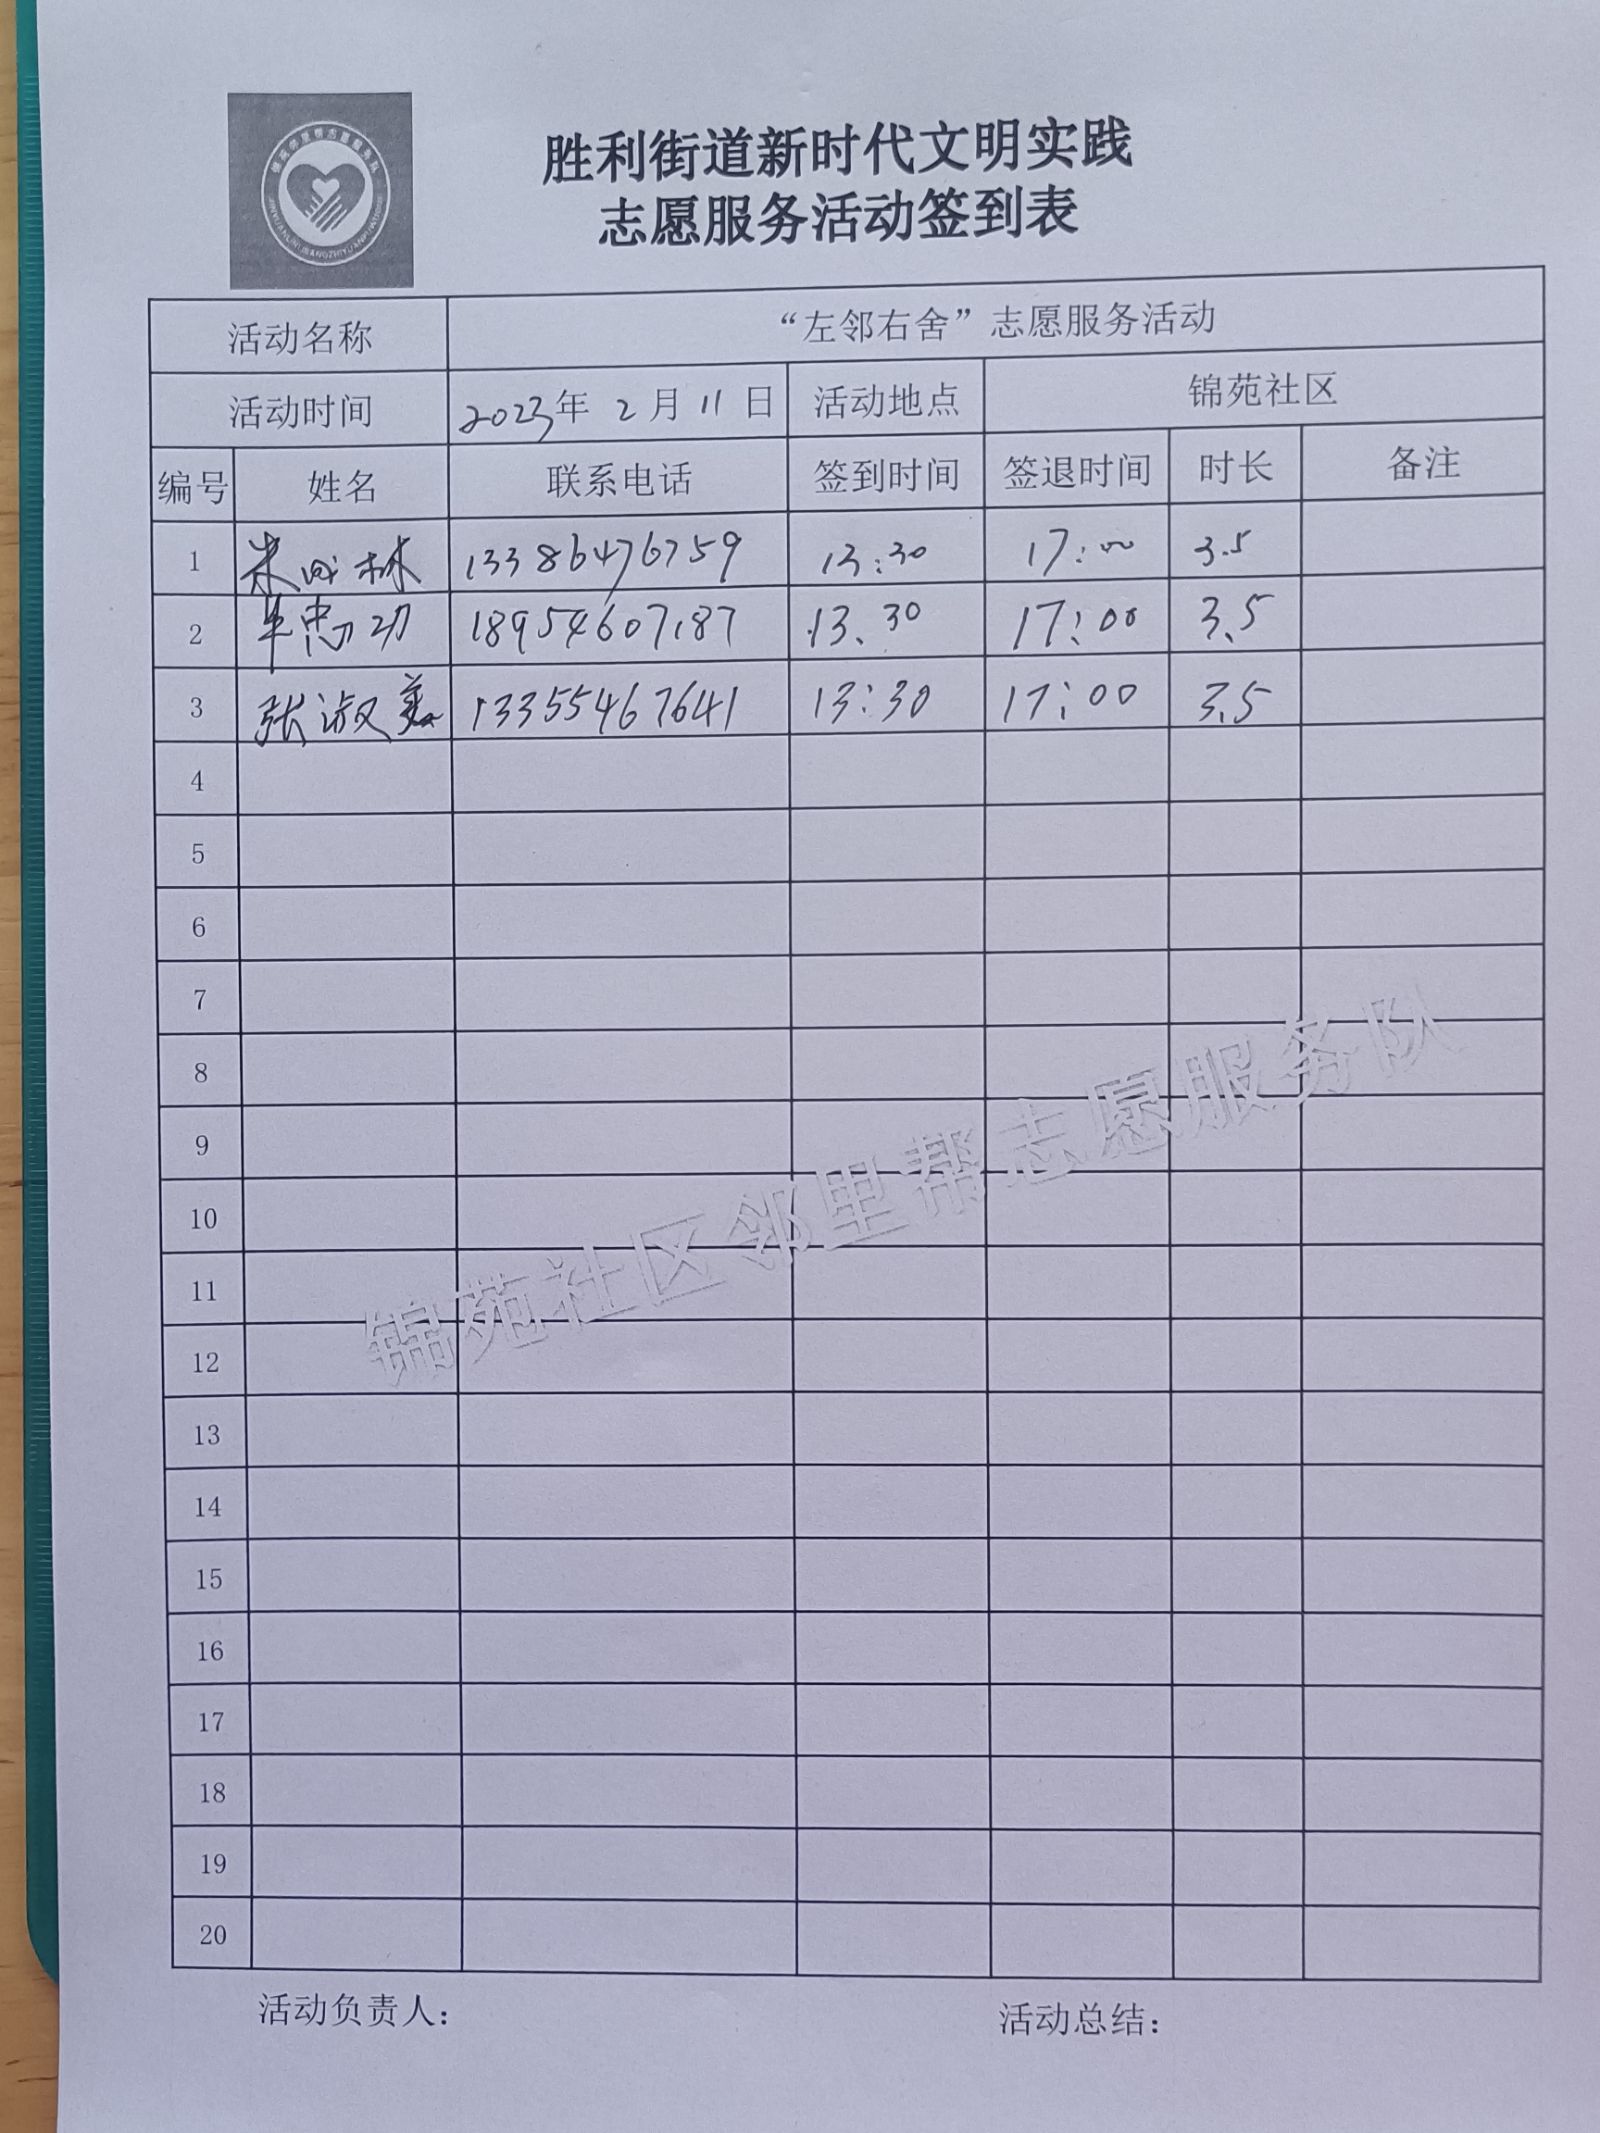 锦苑邻里帮志愿服务队
JINYUANLINLIBANGZHIYUANFUWUDUI
胜利街道新时代文明实践
志愿服务活动签到表
活动名称 “左邻右舍”志愿服务活动
活动时间 2023年 2月11日 活动地点 锦苑社区
编号 姓名 联系电话 签到时间 签退时间 时长 备注
1 林 13386476759 13:30 17:00 3.5
2 忠功 18954607187 13.30 17:00 3.5
3 张淑美 13355467641 13:30 17:00 3.5
4
5
6
7
8
9
10
11
12
13
14
15
16
17
18
19
20
锦苑社区邻里帮志愿服务队
活动负责人： 活动总结：